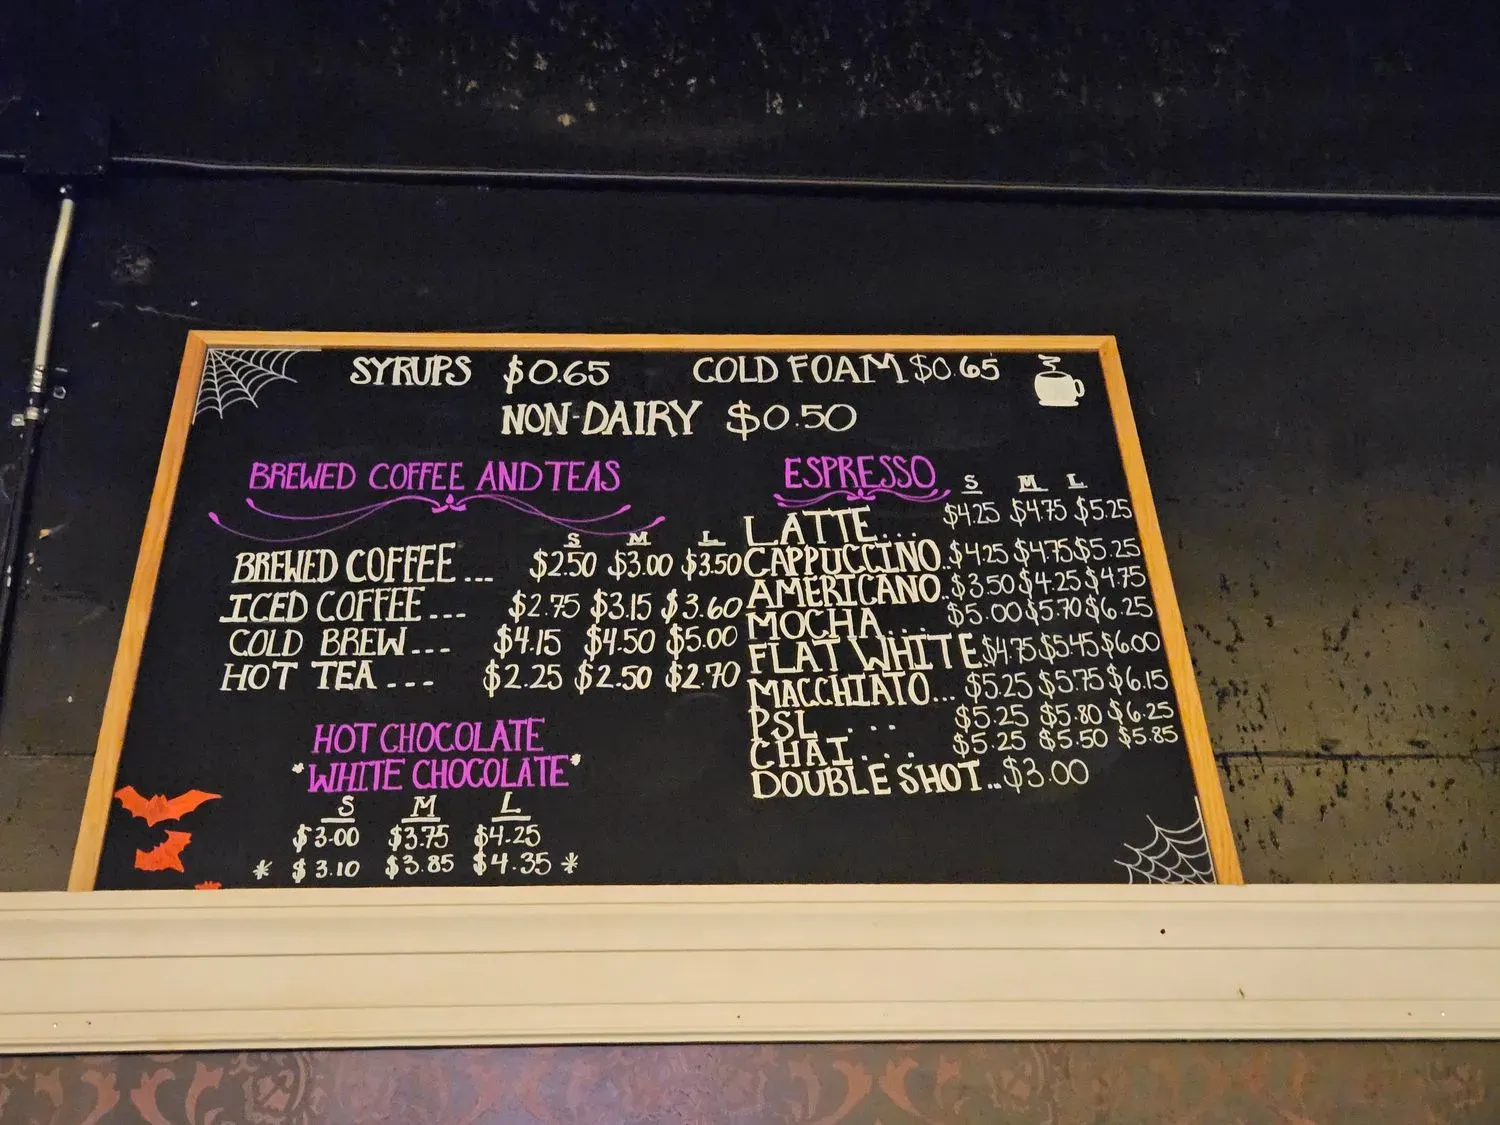 SYRUPS $0.65 COLD FOAM $0.65
NON-DAIRY $0.50
BREWED COFFEE AND TEAS
S M L
BREWED COFFEE ... $2.50 $3.00 $3.50
ICED COFFEE --- $2.75 $3.15 $3.60
COLD BREW --- $4.15 $4.50 $5.00
HOT TEA --- $2.25 $2.50 $2.70
HOT CHOCOLATE
*WHITE CHOCOLATE*
S M L
$3.00 $3.75 $4.25
* $3.10 $3.85 $4.35 *
ESPRESSO S M L
LATTE... $4.25 $4.75 $5.25
CAPPUCCINO.. $4.25 $4.75 $5.25
AMERICANO.. $3.50 $4.25 $4.75
MOCHA... $5.00 $5.70 $6.25
FLAT WHITE. $4.75 $5.45 $6.00
MACCHIATO... $5.25 $5.75 $6.15
PSL ... $5.25 $5.80 $6.25
CHAI.... $5.25 $5.50 $5.85
DOUBLE SHOT.. $3.00